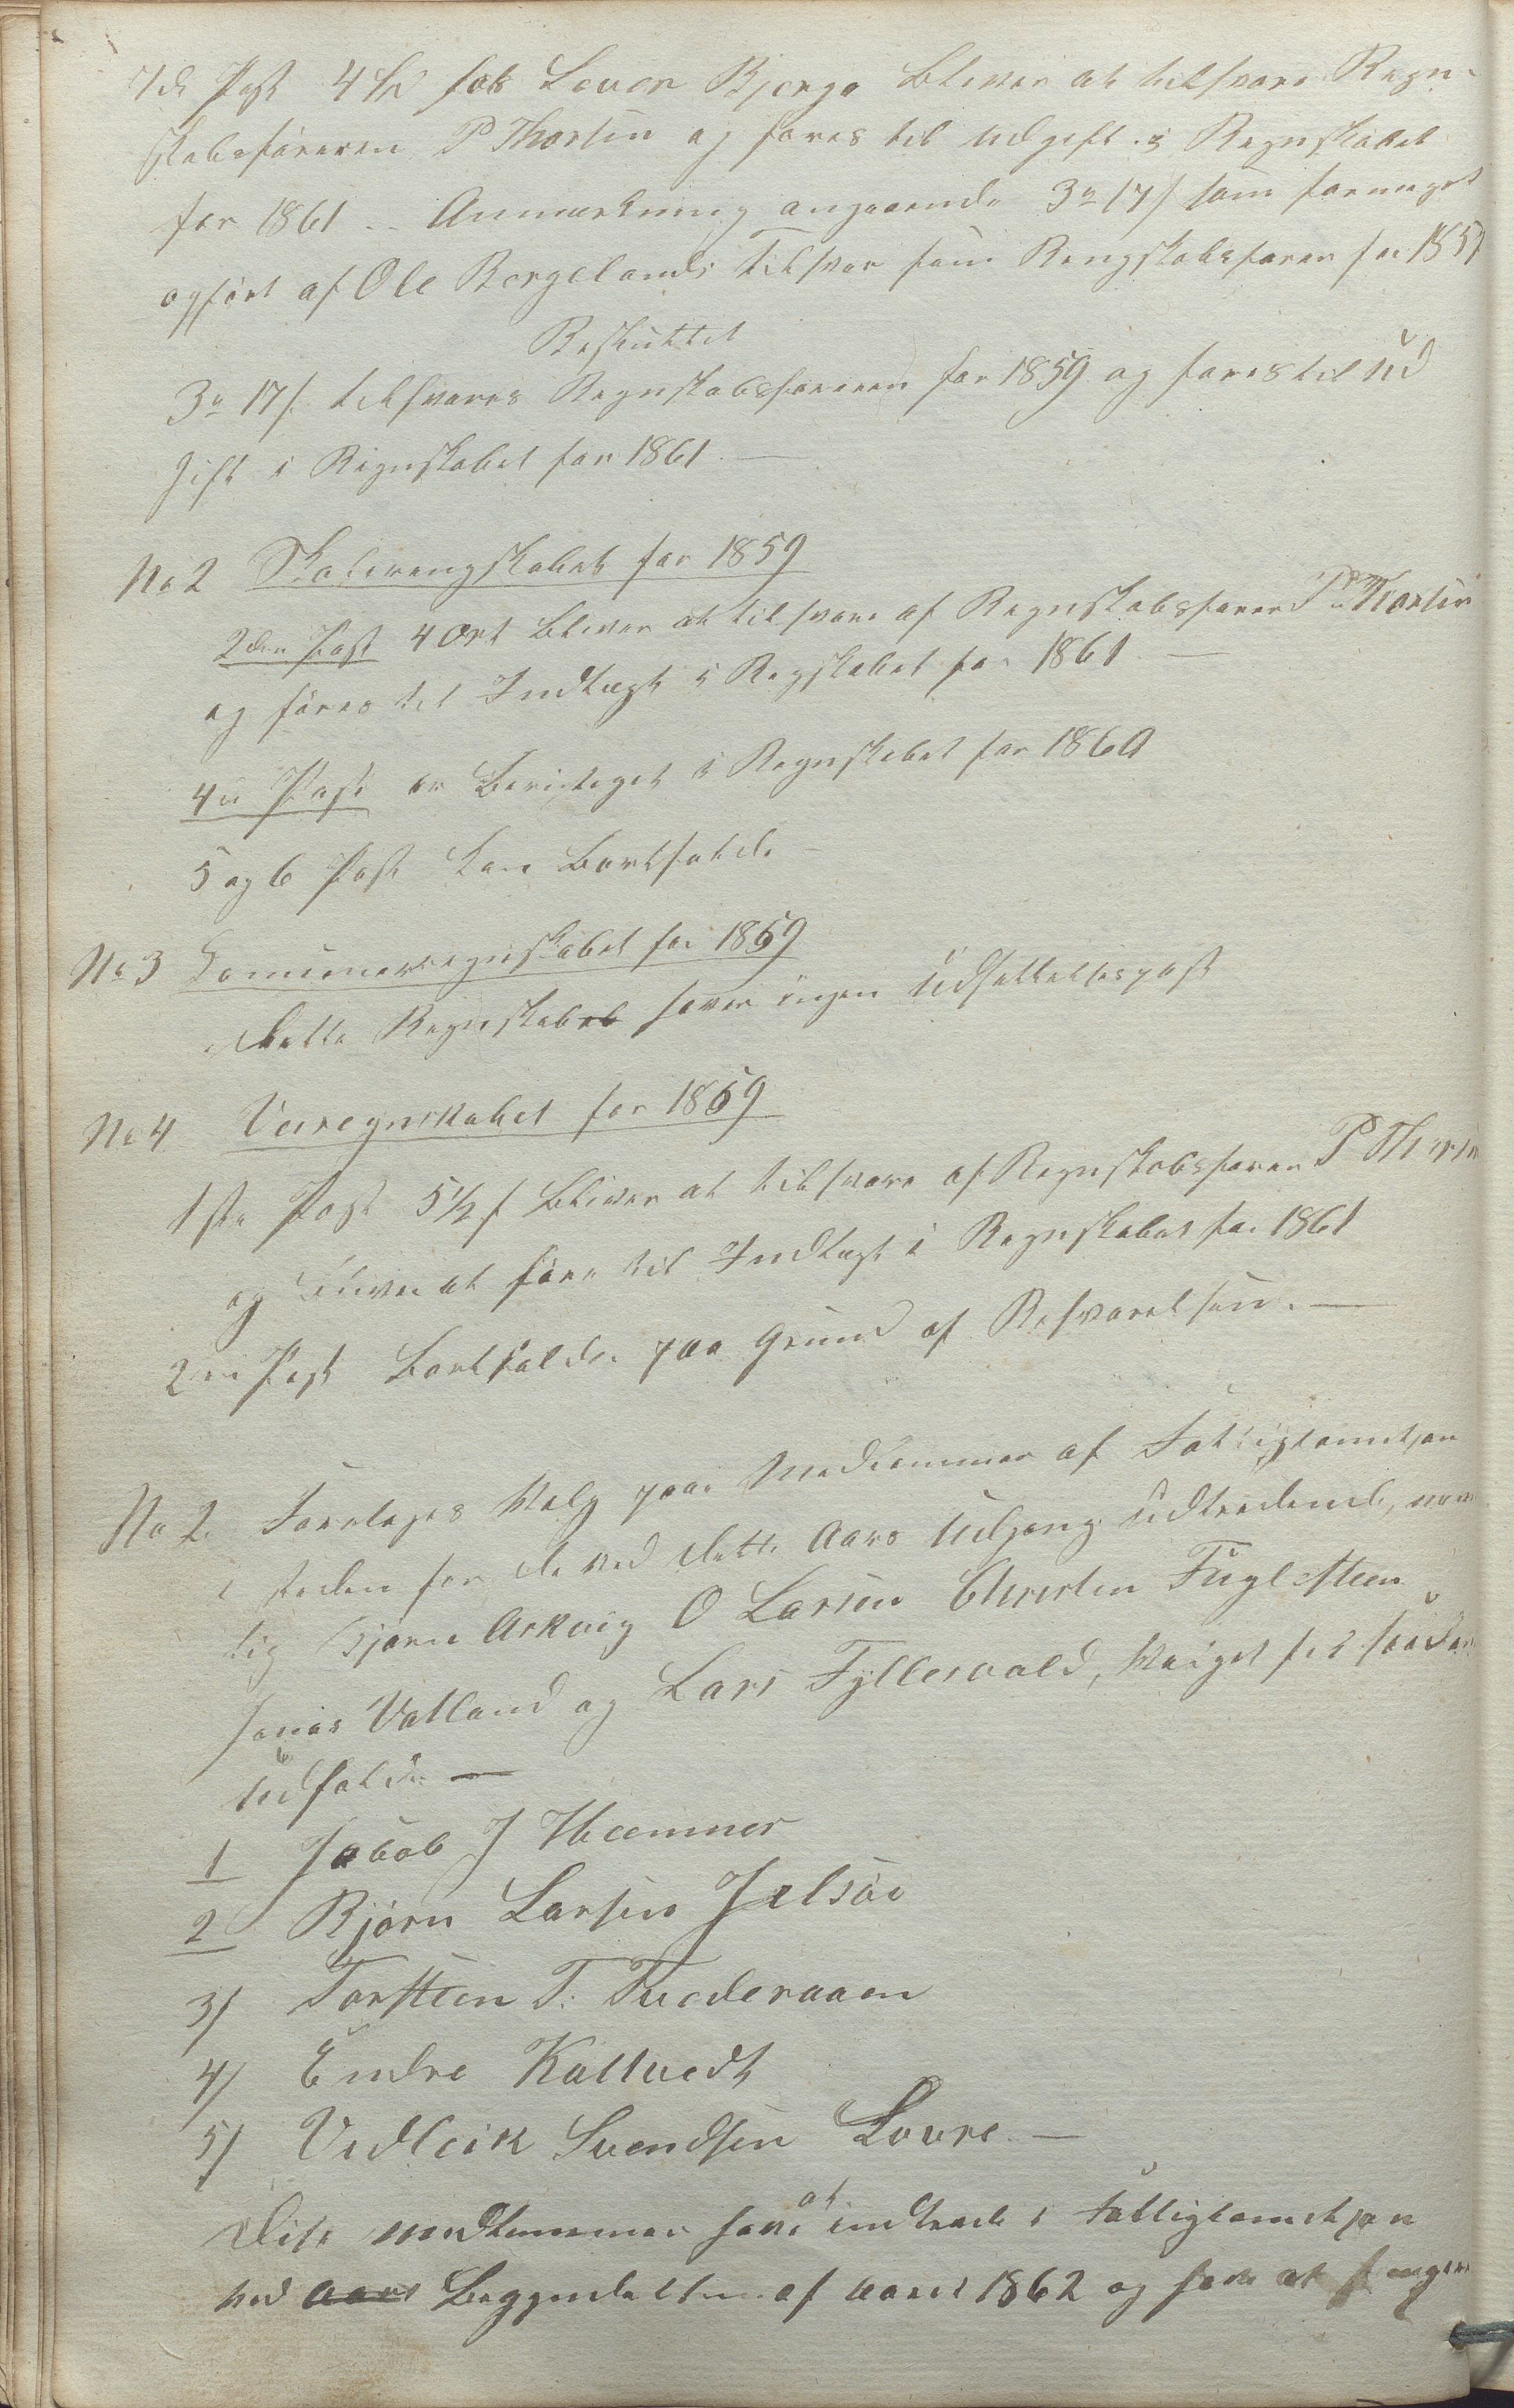 7de Post 4 ſ₰ hos Bjerge Bliver at tilsvare Regn-
skabsføreren P Thorsen og føres til Udgift i Regnskabet
for 1861 .. Anmærkning angaaende 3 " 17 ſ som formeget
opført af Ole Bergelands Tilsvar som Rengskabsfører for 1857
Besluttet
3 " 17 ſ tilsvares Regnskabsføreren for 1859 og føres til Ud
gift i Regnskabet for 1861. —
No 2 Skolerengskabet for 1859
2den Post 4 Ort Bliver at tilsvare af Regnskabsfører P Thorsen
og føres til Indtægt i Regskabet for 1861 —
4de Post er Berigtiget i Regnskabet for 1860
5 og 6 Post kan Bortfalde —
No 3 Comuneregnskabet for 1859
Dette Regnskab haver ingen Udsættelsespost
No 4 Veiregnskabet for 1859
1ste Post 5½ ſ Bliver at tilsvare af Regnskabsfører P Thorsen
og Bliver at føre til Indtægt i Regnskabet for 1861
2den Post Bortfalder paa Grund af Besvarelsen. —
No 2. Foretoges Valg paa Medlemmer af Fattigkomitsjon
i steden for de ved dette Aars Udgang Udtredende, nem
lig Bjørn Askvig O Larsen Christen Fuglesteen
Jonas Vatland og Lars Fyllesvold, Valget fik saadan
Udfald: —
1 Jakob J Hæmmer
2 Bjørn Larsen Jelsøe
3) Torsteen T. Tvederaaen
4) Endre Kaltvedt
5) Vedleik Svendsen Lovre. —
Disse medlemmer have at indtræde i Fattigkomitsjon
ved Aars Begyndelsen af Aaret 1862 og have at fungere